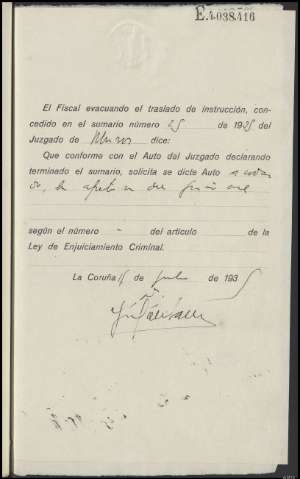 E.4.038.416
El Fiscal evacuando el traslado de instrucción, con-
cedido en el sumario número 25 de 1935 del
Juzgado de Muros dice:
Que conforme con el Auto del Juzgado declarando
terminado el sumario, solicita se dicte Auto
según el número - del artículo de la
Ley de Enjuiciamiento Criminal.
La Coruña de julio de 1935